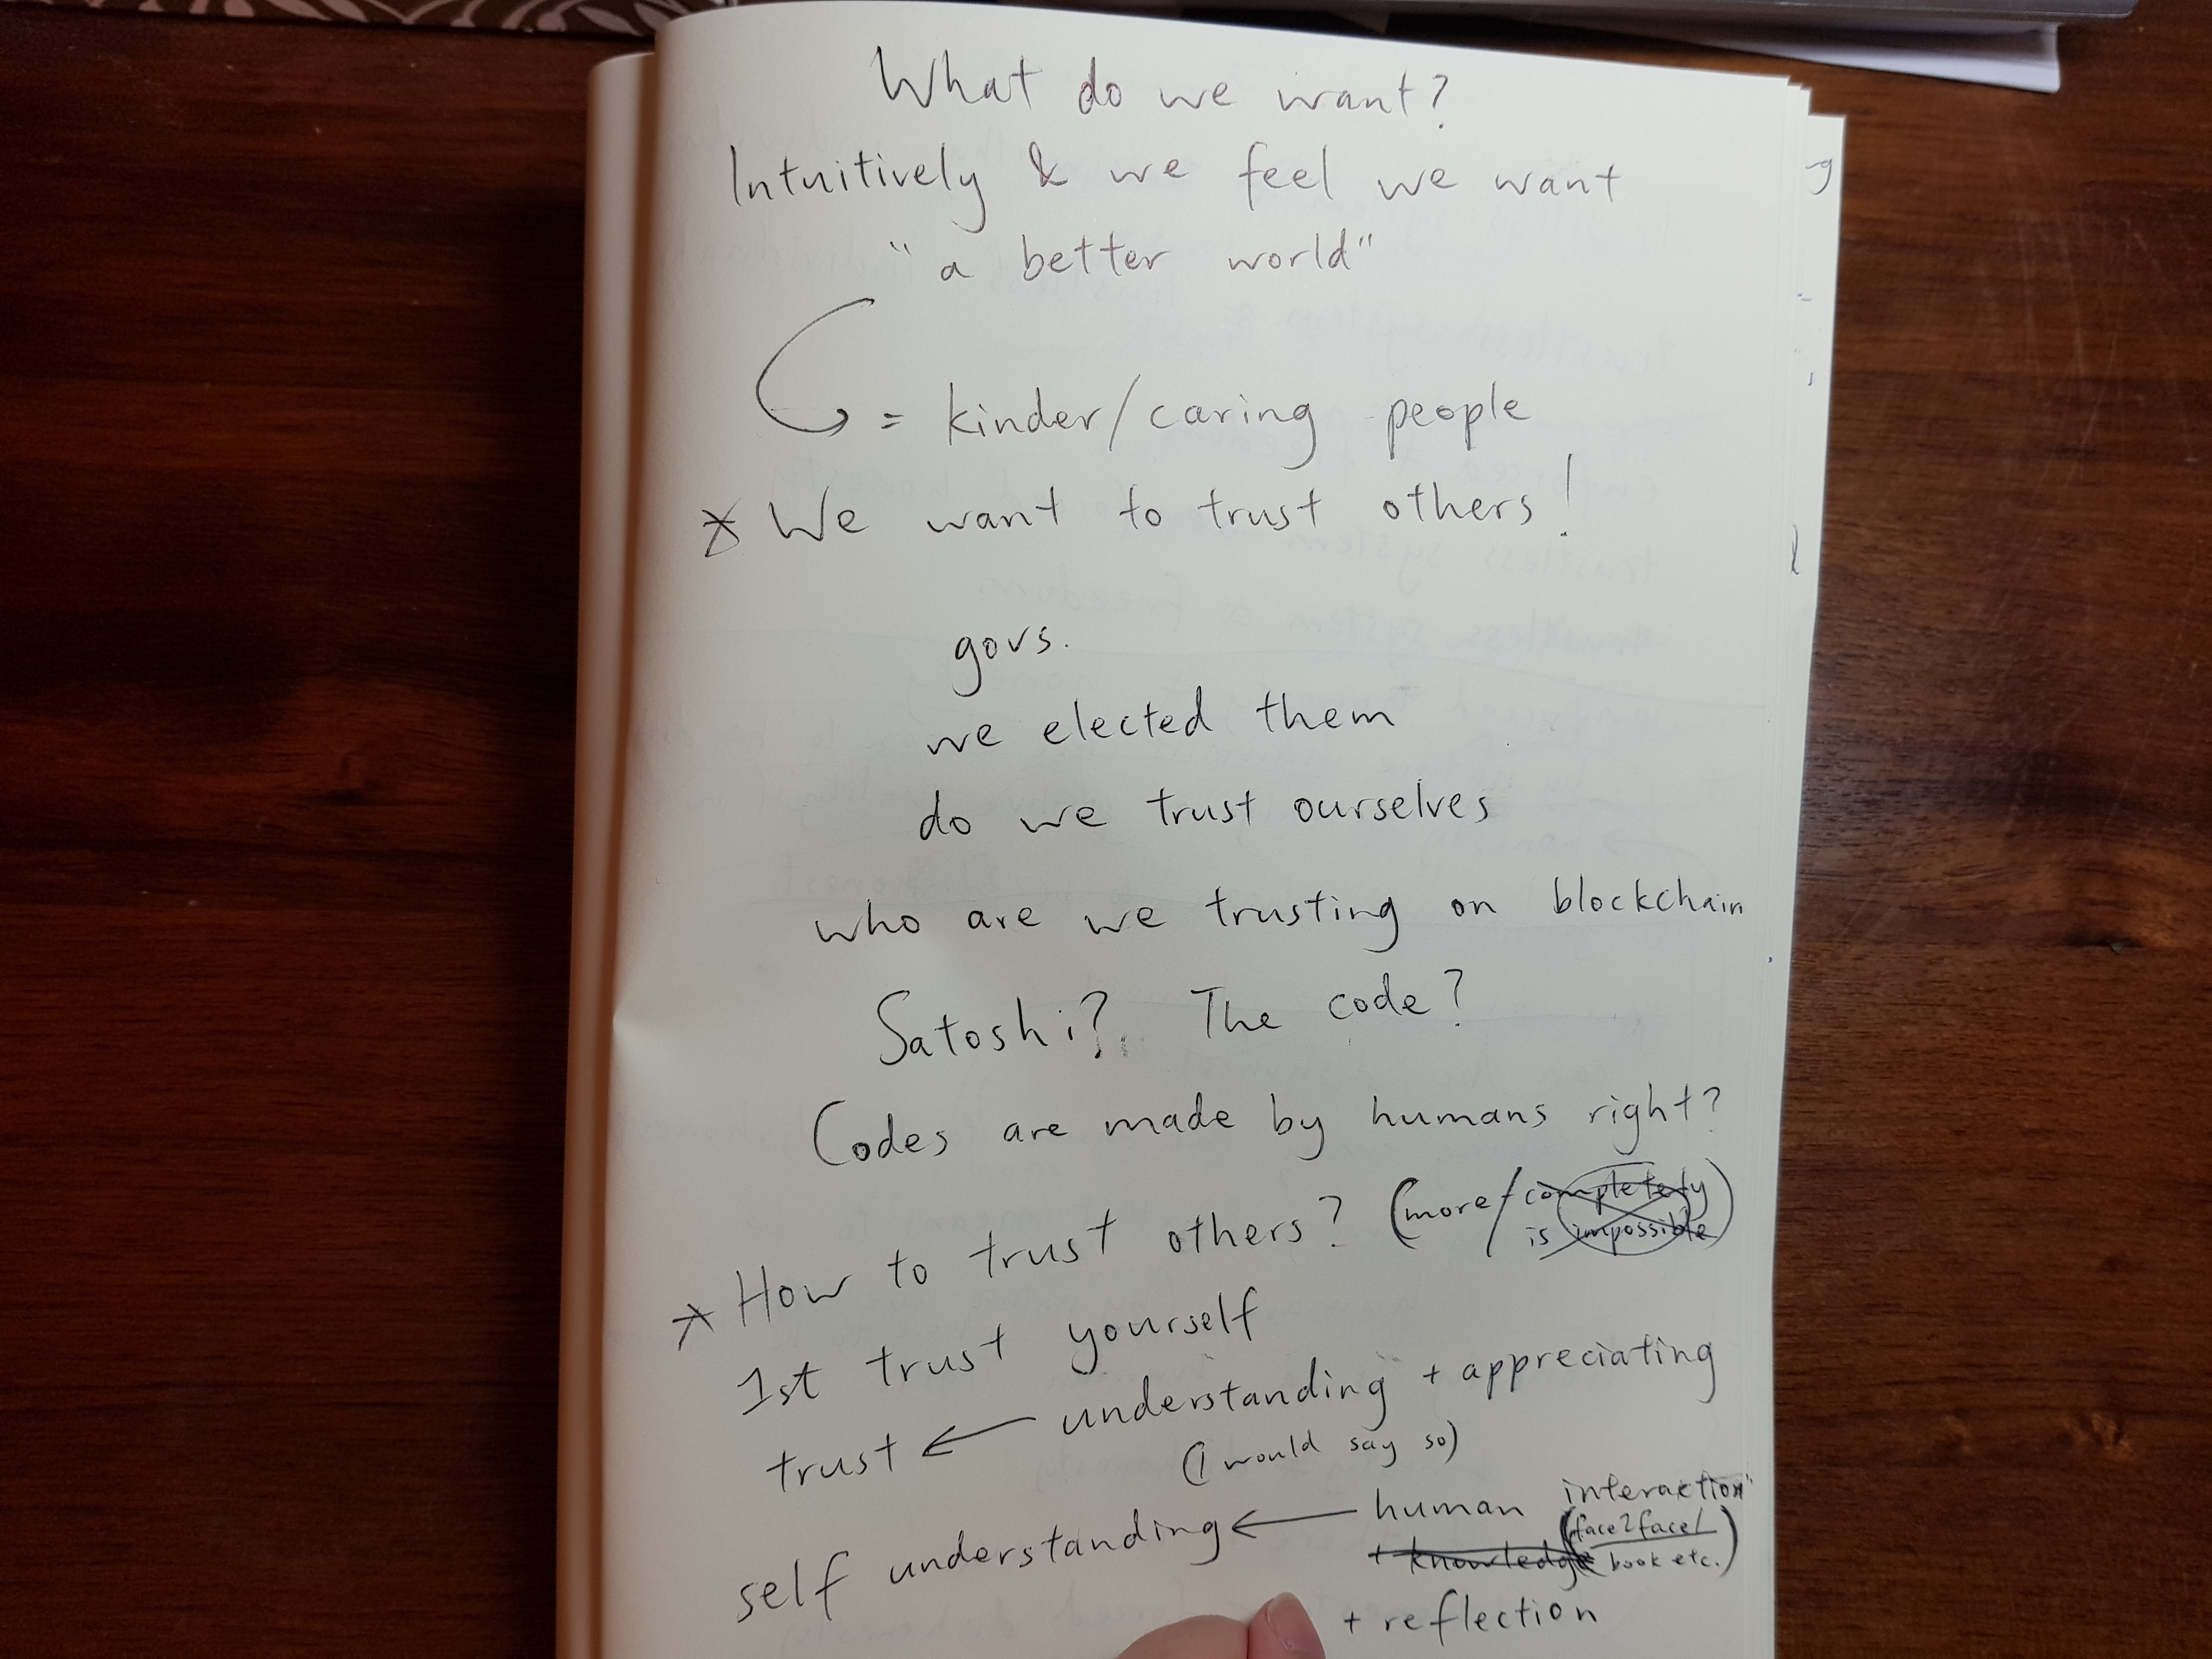 What do we want?
Intuitively & we feel we want
"a better world"
= kinder/caring people
* We want to trust others!
govs.
we elected them
do we trust ourselves
who are we trusting on blockchain
Satoshi? The code?
Codes are made by humans right?
* How to trust others? (more/completely
is impossible)
1st trust yourself
trust ← understanding + appreciating
(I would say so)
self understanding ← human interaction"
(face2face/
+ knowledge book etc.)
+ reflection